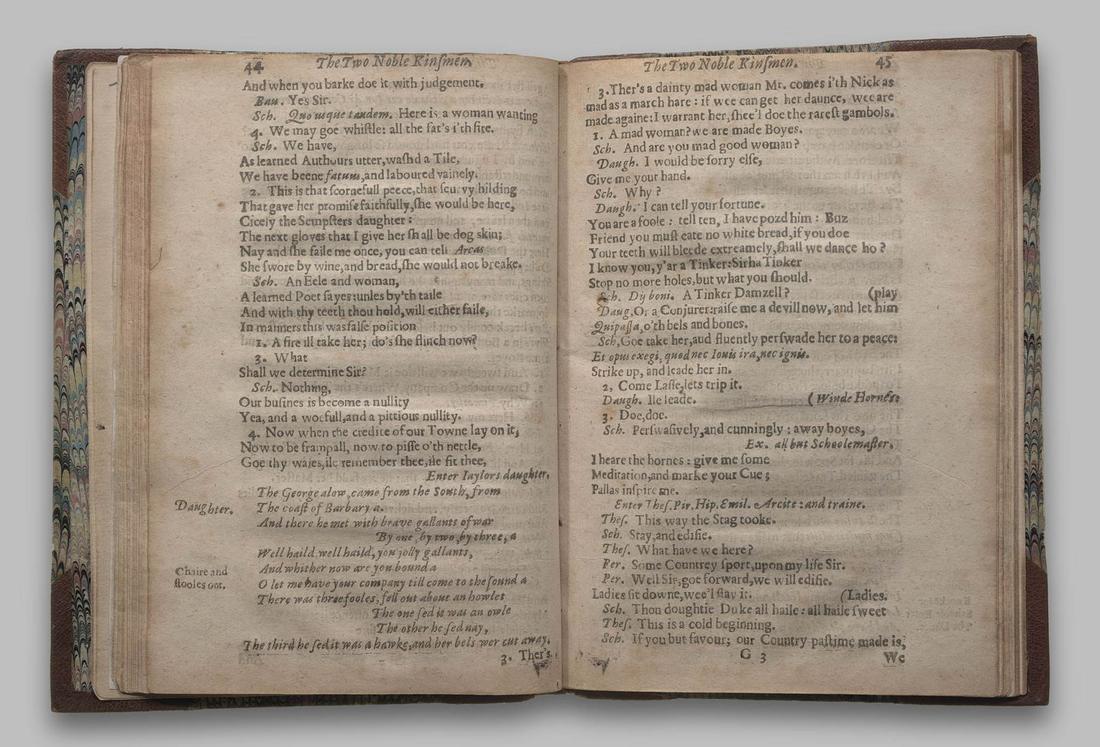 44 The Two Noble Kinſmen.
And when you barke doe it with judgement.
Bau. Yes Sir.
Sch. Quo uſque tandem. Here is a woman wanting
4. We may goe whiſtle: all the fat's i'th fire.
Sch. We have,
As learned Authours utter, waſhd a Tile,
We have beene fatuus, and laboured vainely.
2. This is that ſcornefull peece, that ſcurvy hilding
That gave her promiſe faithfully, ſhe would be here,
Cicely the Sempſters daughter:
The next gloves that I give her ſhall be dog skin;
Nay and ſhe faile me once, you can tell Arcas
She ſwore by wine, and bread, ſhe would not breake.
Sch. An Eele and woman,
A learned Poet ſayes: unles by'th taile
And with thy teeth thou hold, will either faile,
In manners this was falſe poſition
1. A fire ill take her; do's ſhe flinch now?
3. What
Shall we determine Sir?
Sch. Nothing,
Our buſines is become a nullity
Yea, and a woefull, and a pittious nullity.
4. Now when the credite of our Towne lay on it,
Now to be frampall, now to piſſe o'th nettle,
Goe thy waies, ile remember thee, ile fit thee,
Enter Iaylors daughter.
Daughter.
The George alow, came from the South, from
The coaſt of Barbary a.
And there he met with brave gallants of war
By one, by two, by three, a
Well haild, well haild, you jolly gallants,
Chaire and
ſtooles out.
And whither now are you bound a
O let me have your company till come to the ſound a
There was three fooles, fell out about an howlet
The one ſed it was an owle
The other he ſed nay,
The third he ſed it was a hawke, and her bels wer cut away.
3. Ther's
The Two Noble Kinſmen. 45
3. Ther's a dainty mad woman Mr. comes i'th Nick as
mad as a march hare: if wee can get her daunce, wee are
made againe: I warrant her, ſhee'l doe the rareſt gambols.
1. A mad woman? we are made Boyes.
Sch. And are you mad good woman?
Daugh. I would be ſorry elſe,
Give me your hand.
Sch. Why?
Daugh. I can tell your fortune.
You are a foole: tell ten, I have pozd him: Buz
Friend you muſt eate no white bread, if you doe
Your teeth will bleede extreamely, ſhall we dance ho?
I know you, y'ar a Tinker: Sirha Tinker
Stop no more holes, but what you ſhould.
Sch. Dij boni. A Tinker Damzell? (play
Daug, Or a Conjurer: raiſe me a devill now, and let him
Quipaſſa, o'th bels and bones.
Sch, Goe take her, aud fluently perſwade her to a peace:
Et opus exegi, quod nec Iouis ira, nec ignis.
Strike up, and leade her in.
2, Come Laſſe, lets trip it.
Daugh. Ile leade. (Winde Hornes:
3. Doe, doe.
Sch. Perſwaſively, and cunningly: away boyes,
Ex. all but Schoolemaſter.
I heare the hornes: give me ſome
Meditation, and marke your Cue;
Pallas inſpire me.
Enter Theſ. Pir, Hip, Emil. Arcite: and traine.
Theſ. This way the Stag tooke.
Sch. Stay, and edifie.
Theſ. What have we here?
Per. Some Countrey ſport, upon my life Sir.
Per. Well Sir, goe forward, we will edifie.
Ladies ſit downe, wee'l ſtay it. (Ladies.
Sch. Thou doughtie Duke all haile: all haile ſweet
Theſ. This is a cold beginning.
Sch. If you but favour; our Country paſtime made is,
G 3 We